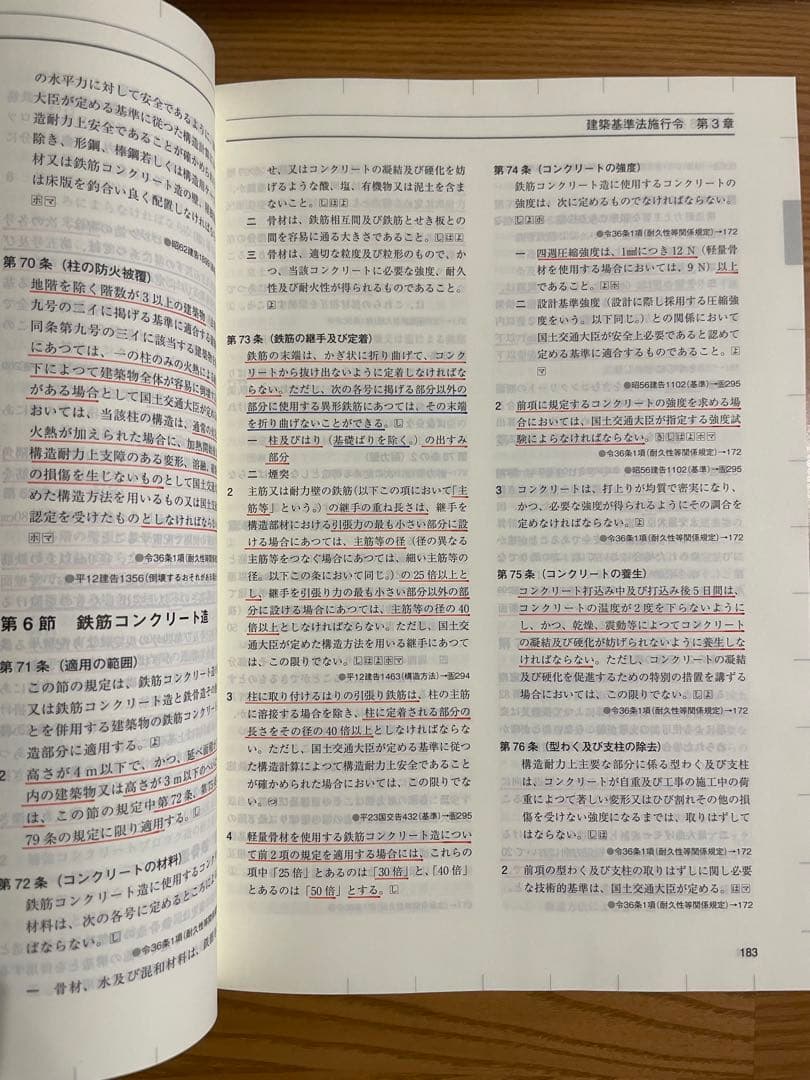 の水平力に対して安全であるように、
大臣が定める基準に従つた構造計算
造耐力上安全であることが確かめら
除き、形鋼、棒鋼若しくは構造用
材又は鉄筋コンクリート造の壁、
は床版を釣合い良く配置しなければ
ホマ
●昭62建告1899
第70条（柱の防火被覆）
地階を除く階数が3以上の建築物
九号の二イに掲げる基準に適合する
同条第九号の三イに該当する建築物
にあつては、一の柱のみの火熱による
下によつて建築物全体が容易に倒壊
がある場合として国土交通大臣が定
おいては、当該柱の構造は、通常の
火熱が加えられた場合に、加熱開始
構造耐力上支障のある変形、溶融、
の損傷を生じないものとして国土
めた構造方法を用いるもの又は国土
認定を受けたものとしなければなら
ホマ
●令36条1項(耐久性等関係
●平12建告1356(倒壊するおそれがある
第6節　鉄筋コンクリート造
第71条（適用の範囲）
この節の規定は、鉄筋コンクリート造の
又は鉄筋コンクリート造と鉄骨造その
とを併用する建築物の鉄筋コンクリート
造部分に適用する。よ
2　高さが4m以下で、かつ、延べ面積が
内の建築物又は高さが3m以下のへい
は、この節の規定中第72条、第75条
79条の規定に限り適用する。し
第72条（コンクリートの材料）
鉄筋コンクリート造に使用するコンク
材料は、次の各号に定めるところによ
ばならない。し
●令36条1項(耐久性等関係規
一　骨材、水及び混和材料は、鉄筋を
建築基準法施行令　第3章
せ、又はコンクリートの凝結及び硬化を妨
げるような酸、塩、有機物又は泥土を含ま
ないこと。しほよ
二　骨材は、鉄筋相互間及び鉄筋とせき板との
間を容易に通る大きさであること。しほよ
三　骨材は、適切な粒度及び粒形のもので、か
つ、当該コンクリートに必要な強度、耐久
性及び耐火性が得られるものであること。
よ
第73条（鉄筋の継手及び定着）
鉄筋の末端は、かぎ状に折り曲げて、コンク
リートから抜け出ないように定着しなければな
らない。ただし、次の各号に掲げる部分以外の
部分に使用する異形鉄筋にあつては、その末端
を折り曲げないことができる。し
一　柱及びはり（基礎ばりを除く。）の出すみ
部分
二　煙突
2　主筋又は耐力壁の鉄筋（以下この項において「主
筋等」という。）の継手の重ね長さは、継手を
構造部材における引張力の最も小さい部分に設
ける場合にあつては、主筋等の径（径の異なる
主筋等をつなぐ場合にあつては、細い主筋等の
径。以下この条において同じ。）の25倍以上と
し、継手を引張り力の最も小さい部分以外の部
分に設ける場合にあつては、主筋等の径の40
倍以上としなければならない。ただし、国土交
通大臣が定めた構造方法を用いる継手にあつて
は、この限りでない。しほよホマ
●平12建告1463(構造方法)→告294
3　柱に取り付けるはりの引張り鉄筋は、柱の主筋
に溶接する場合を除き、柱に定着される部分の
長さをその径の40倍以上としなければならな
い。ただし、国土交通大臣が定める基準に従つ
た構造計算によつて構造耐力上安全であること
が確かめられた場合においては、この限りでな
い。
●平23国交告432(基準)→告295
4　軽量骨材を使用する鉄筋コンクリート造につい
て前2項の規定を適用する場合には、これらの
項中「25倍」とあるのは「30倍」と、「40倍」
とあるのは「50倍」とする。し
第74条（コンクリートの強度）
鉄筋コンクリート造に使用するコンクリートの
強度は、次に定めるものでなければならない。
しよホ
●令36条1項(耐久性等関係規定)→172
一　四週圧縮強度は、1㎟につき12N（軽量骨
材を使用する場合においては、9N）以上
であること。よホ
二　設計基準強度（設計に際し採用する圧縮強
度をいう。以下同じ。）との関係において
国土交通大臣が安全上必要であると認めて
定める基準に適合するものであること。よ
マ
●昭56建告1102(基準)→告295
2　前項に規定するコンクリートの強度を求める場
合においては、国土交通大臣が指定する強度試
験によらなければならない。きしほよホマ
●令36条1項(耐久性等関係規定)→172
●昭56建告1102(基準)→告295
3　コンクリートは、打上りが均質で密実になり、
かつ、必要な強度が得られるようにその調合を
定めなければならない。よ
●令36条1項(耐久性等関係規定)→172
第75条（コンクリートの養生）
コンクリート打込み中及び打込み後5日間は、
コンクリートの温度が2度を下らないように
し、かつ、乾燥、震動等によつてコンクリート
の凝結及び硬化が妨げられないように養生しな
ければならない。ただし、コンクリートの凝結
及び硬化を促進するための特別の措置を講ずる
場合においては、この限りでない。しよ
●令36条1項(耐久性等関係規定)→172
第76条（型わく及び支柱の除去）
構造耐力上主要な部分に係る型わく及び支柱
は、コンクリートが自重及び工事の施工中の荷
重によつて著しい変形又はひび割れその他の損
傷を受けない強度になるまでは、取りはずして
はならない。しほ
●令36条1項(耐久性等関係規定)→172
2　前項の型わく及び支柱の取りはずしに関し必要
な技術的基準は、国土交通大臣が定める。ほマ
●令36条1項(耐久性等関係規定)→172
183